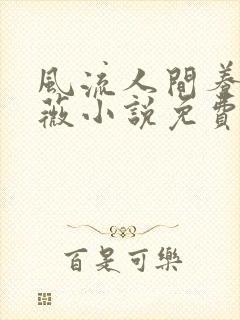 風流人間養
薇小說免費
百是可樂